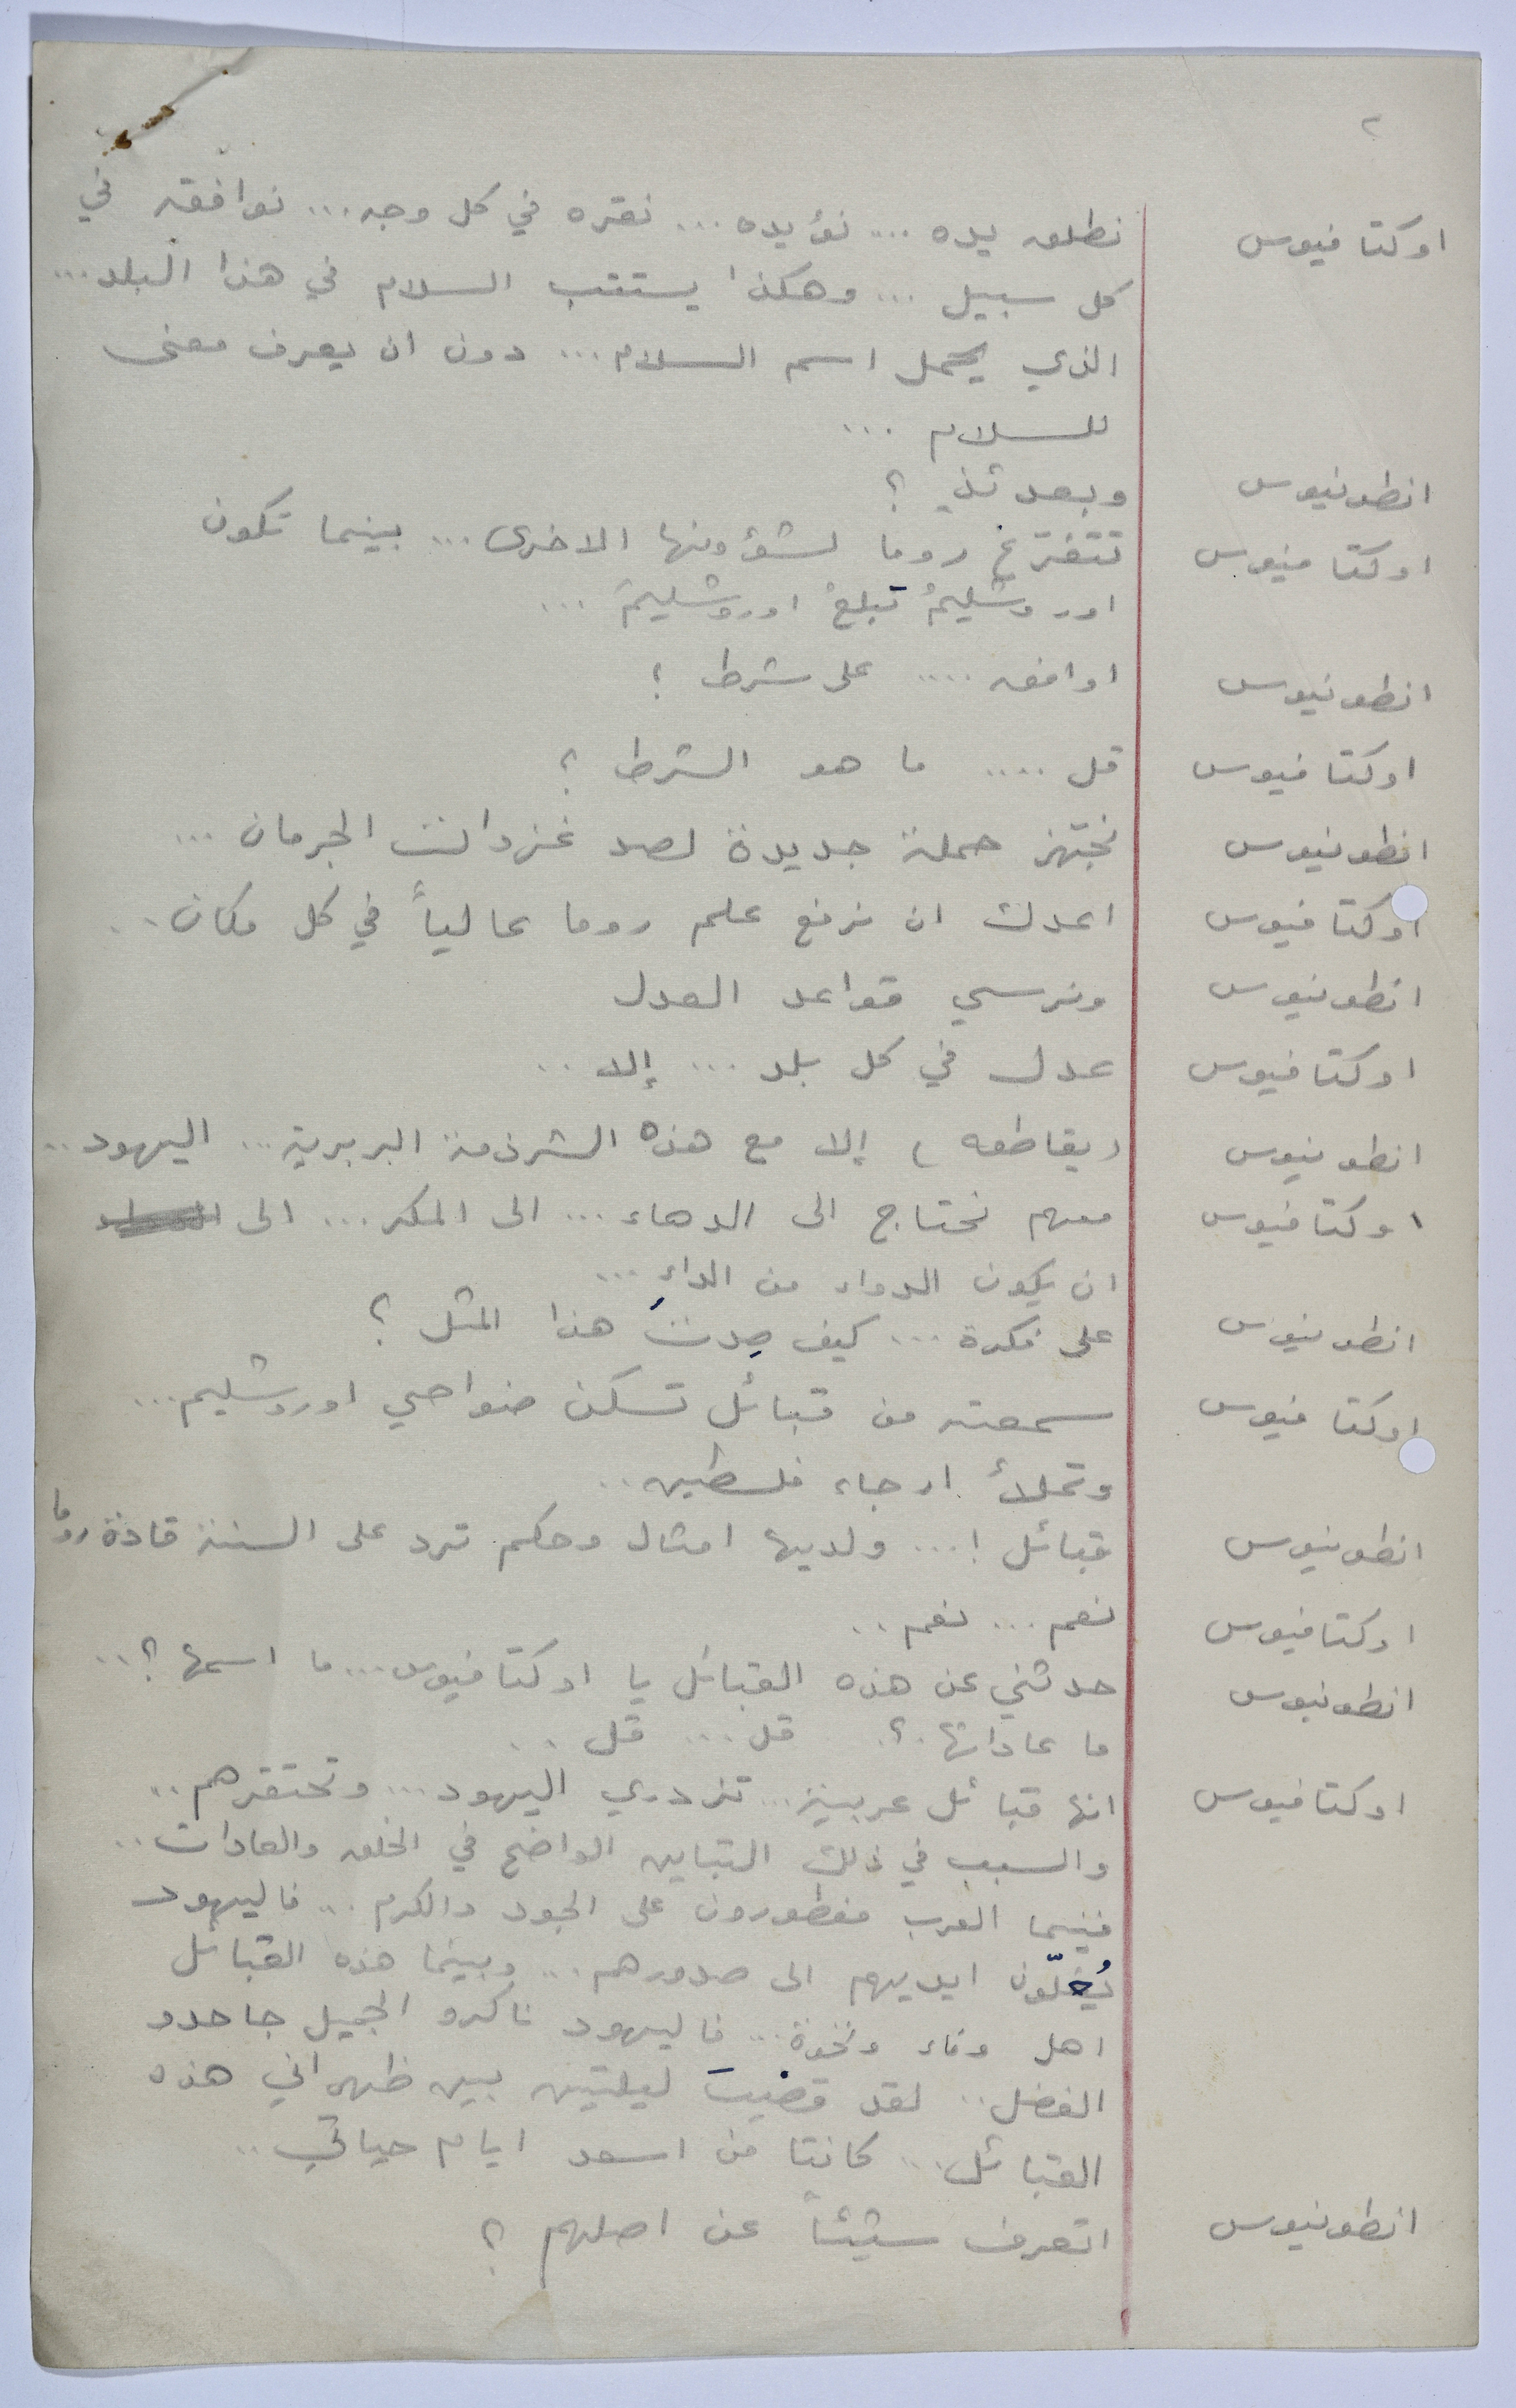 ٢
اوكتافيوس نطلق يده ... نؤيده ... نقره في كل وجه ... نوافقه في
كل سبيل ... وهكذا يستتب السلام في هذا البلد ...
الذي يحمل اسم السلام ... دون ان يعرف معنى
للسلام ...
انطونيوس وبعدئذٍ ؟
اوكتافيوس تتفرغ روما لشؤونها الاخرى ... بينما تكون
اوروشليمُ تبلعُ اوروشليمَ ...
انطونيوس اوافق ..... على شرط !
اوكتافيوس قل .... ما هو الشرط ؟
انطونيوس نجهز حملة جديدة لصد غزوات الجرمان ...
اوكتافيوس اعدك ان نرفع علم روما عالياً في كل مكان ..
انطونيوس ونرسي قواعد العدل
اوكتافيوس عدل في كل بلد ... إلا ..
انطونيوس ( يقاطعه ) إلا مع هذه الشرذمة البربرية ... اليهود ..
اوكتافيوس معهم نحتاج الى الدهاء ... الى المكر ... الى
ان يكون الدواء من الداءِ ...
انطونيوس على فكرة ... كيف صدتَ هذا المثل ؟
اوكتافيوس سمعته من قبائل تسكن ضواحي اوروشليم ...
وتملأ ارجاء فلسطين ..
انطونيوس قبائل ! ... ولديها امثال وحكم ترد على السنة قادة روما
اوكتافيوس نعم ... نعم ..
انطونيوس حدثني عن هذه القبائل يا اوكتافيوس ... ما اسمها ؟ ..
ما عاداتها ؟ . قل ... قل ..
اوكتافيوس انها قبائل عربية ... تزدري اليهود ... وتحتقرهم ..
والسبب في ذلك التباين الواضح في الخلق والعادات ..
فبينما العرب مفطورون على الجود والكرم ... فاليهود
يُغلّون ايديهم الى صدورهم ... وبينما هذه القبائل
اهل وفاء ونخوة ... فاليهود ناكرو الجميل جاحدو
الفضل .. لقد قضيت ليلتين بين ظهراني هذه
القبائل ... كانتا من اسعد ايام حياتي ..
انطونيوس اتعرف شيئاً عن اصلهم ؟